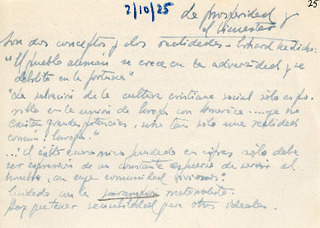 2/10/25
25
La prosperidad y
el bienestar
Son dos conceptos y dos realidades - Erhard
"El pueblo alemán se crece en la adversidad y se
debilita en la fortuna"
"La salvación de la cultura cristiana social sólo es
en la unión de Europa con America .... ya no
existen grandes potencias, sino tan sólo una realidad
común: Europa."
... "el éxito economico fundado en cifras, sólo debe
ser expresión de un constante esfuerzo de servir al
hombre, en cuya comunidad vivimos."
Cuidado con la materialista.
Hay que tener sensibilidad para otros ideales.